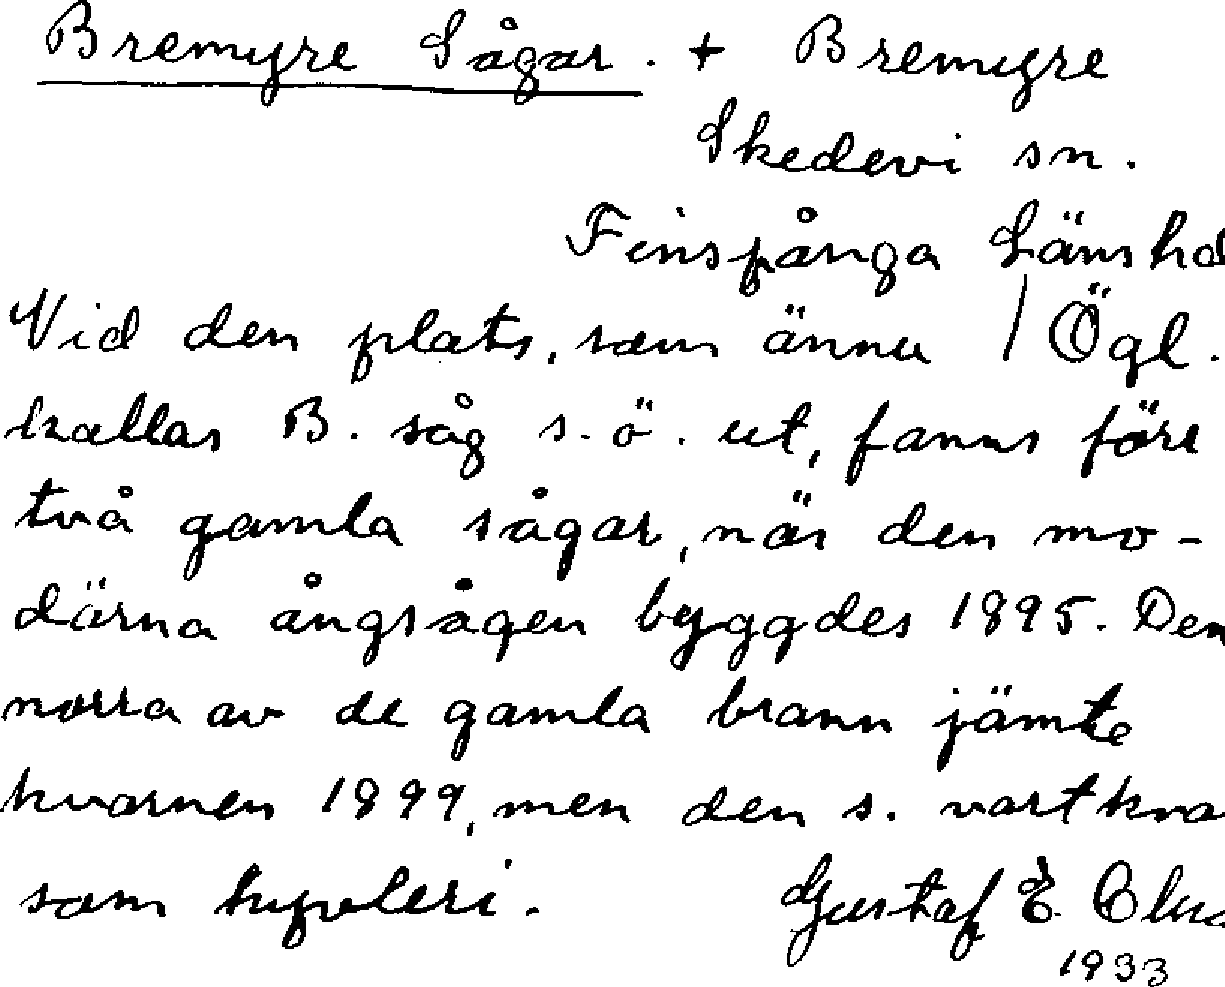 Bremyre Sågar. + Bremyre
Skedevi sn.
Finspånga Länshd
Vid den plats, som ännu / Ögl.
kallas B. såg s.ö. ut, fanns före
två gamla sågar, när den mo-
därna ångsågen byggdes 1895. Den
norra av de gamla brann jämte
kvarnen 1899, men den s. vart kva
som hyvleri.
Gustaf E.
1933